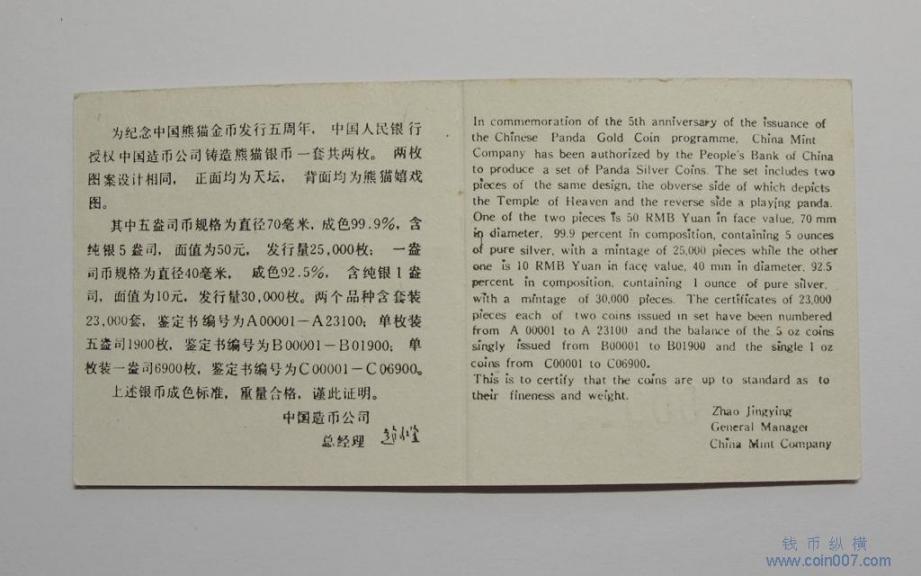 为纪念中国熊猫金币发行五周年，中国人民银行
授权中国造币公司铸造熊猫银币一套共两枚。两枚
图案设计相同，正面均为天坛，背面均为熊猫嬉戏
图。
其中五盎司币规格为直径70毫米，成色99.9%，含
纯银5盎司，面值为50元，发行量25,000枚；一盎
司币规格为直径40毫米，成色92.5%，含纯银1盎
司，面值为10元，发行量30,000枚。两个品种含套装
23,000套，鉴定书编号为A00001－A23100；单枚装
五盎司1900枚，鉴定书编号为B00001－B01900；单
枚装一盎司6900枚，鉴定书编号为C00001－C06900。
上述银币成色标准，重量合格，谨此证明。
中国造币公司
总经理
In commemoration of the 5th anniversary of the issuance of
the Chinese Panda Gold Coin programme, China Mint
Company has been authorized by the People's Bank of China
to produce a set of Panda Silver Coins. The set includes two
pieces of the same design, the obverse side of which depicts
the Temple of Heaven and the reverse side a playing panda.
One of the two pieces is 50 RMB Yuan in face value, 70 mm
in diameter, 99.9 percent in composition, containing 5 ounces
of pure silver, with a mintage of 25,000 pieces while the other
one is 10 RMB Yuan in face value, 40 mm in diameter, 92.5
percent in composition, containing 1 ounce of pure silver,
with a mintage of 30,000 pieces. The certificates of 23,000
pieces each of two coins issued in set have been numbered
from A 00001 to A 23100 and the balance of the 5 oz coins
singly issued from B00001 to B01900 and the single 1 oz
coins from C00001 to C06900.
This is to certify that the coins are up to standard as to
their fineness and weight.
Zhao Jingying
General Manager
China Mint Company
钱币纵横
www.coin007.com